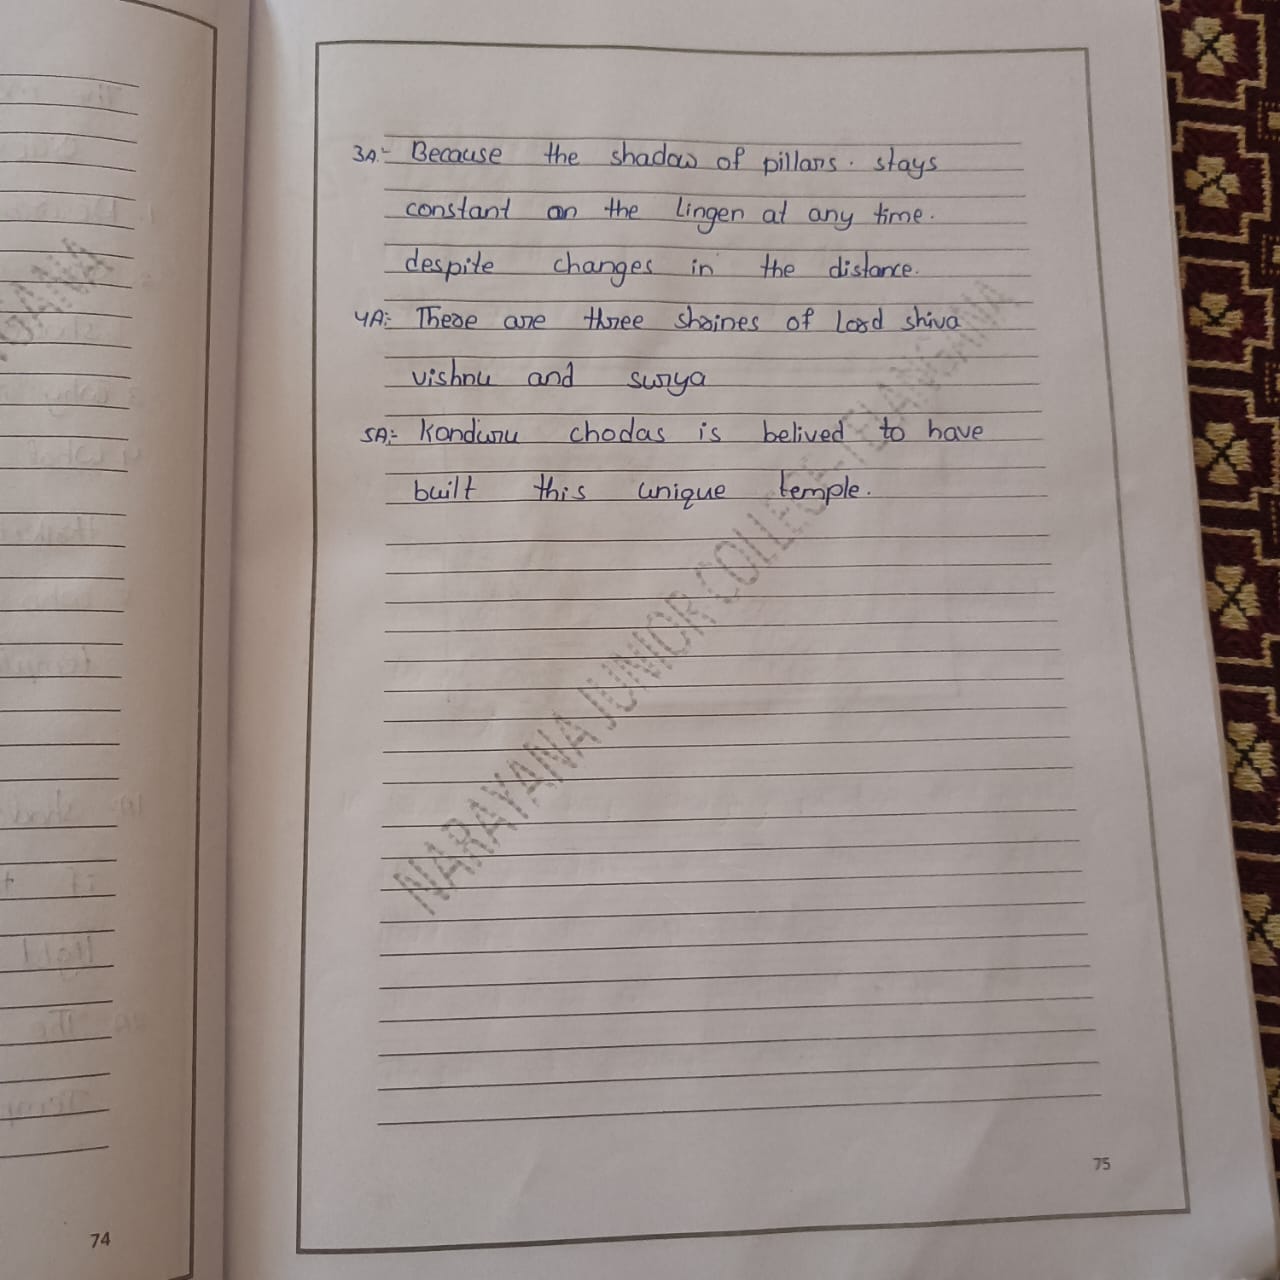 3A:- Because the shadow of pillars. stays
constant on the Lingen at any time.
despite changes in the distance.
4A:- These are three shrines of Lord shiva
vishnu and surya
5A:- Kanduru chodas is belived to have
built this unique temple.
NARAYANA JUNIOR COLLEGE-TELANGANA
75
74